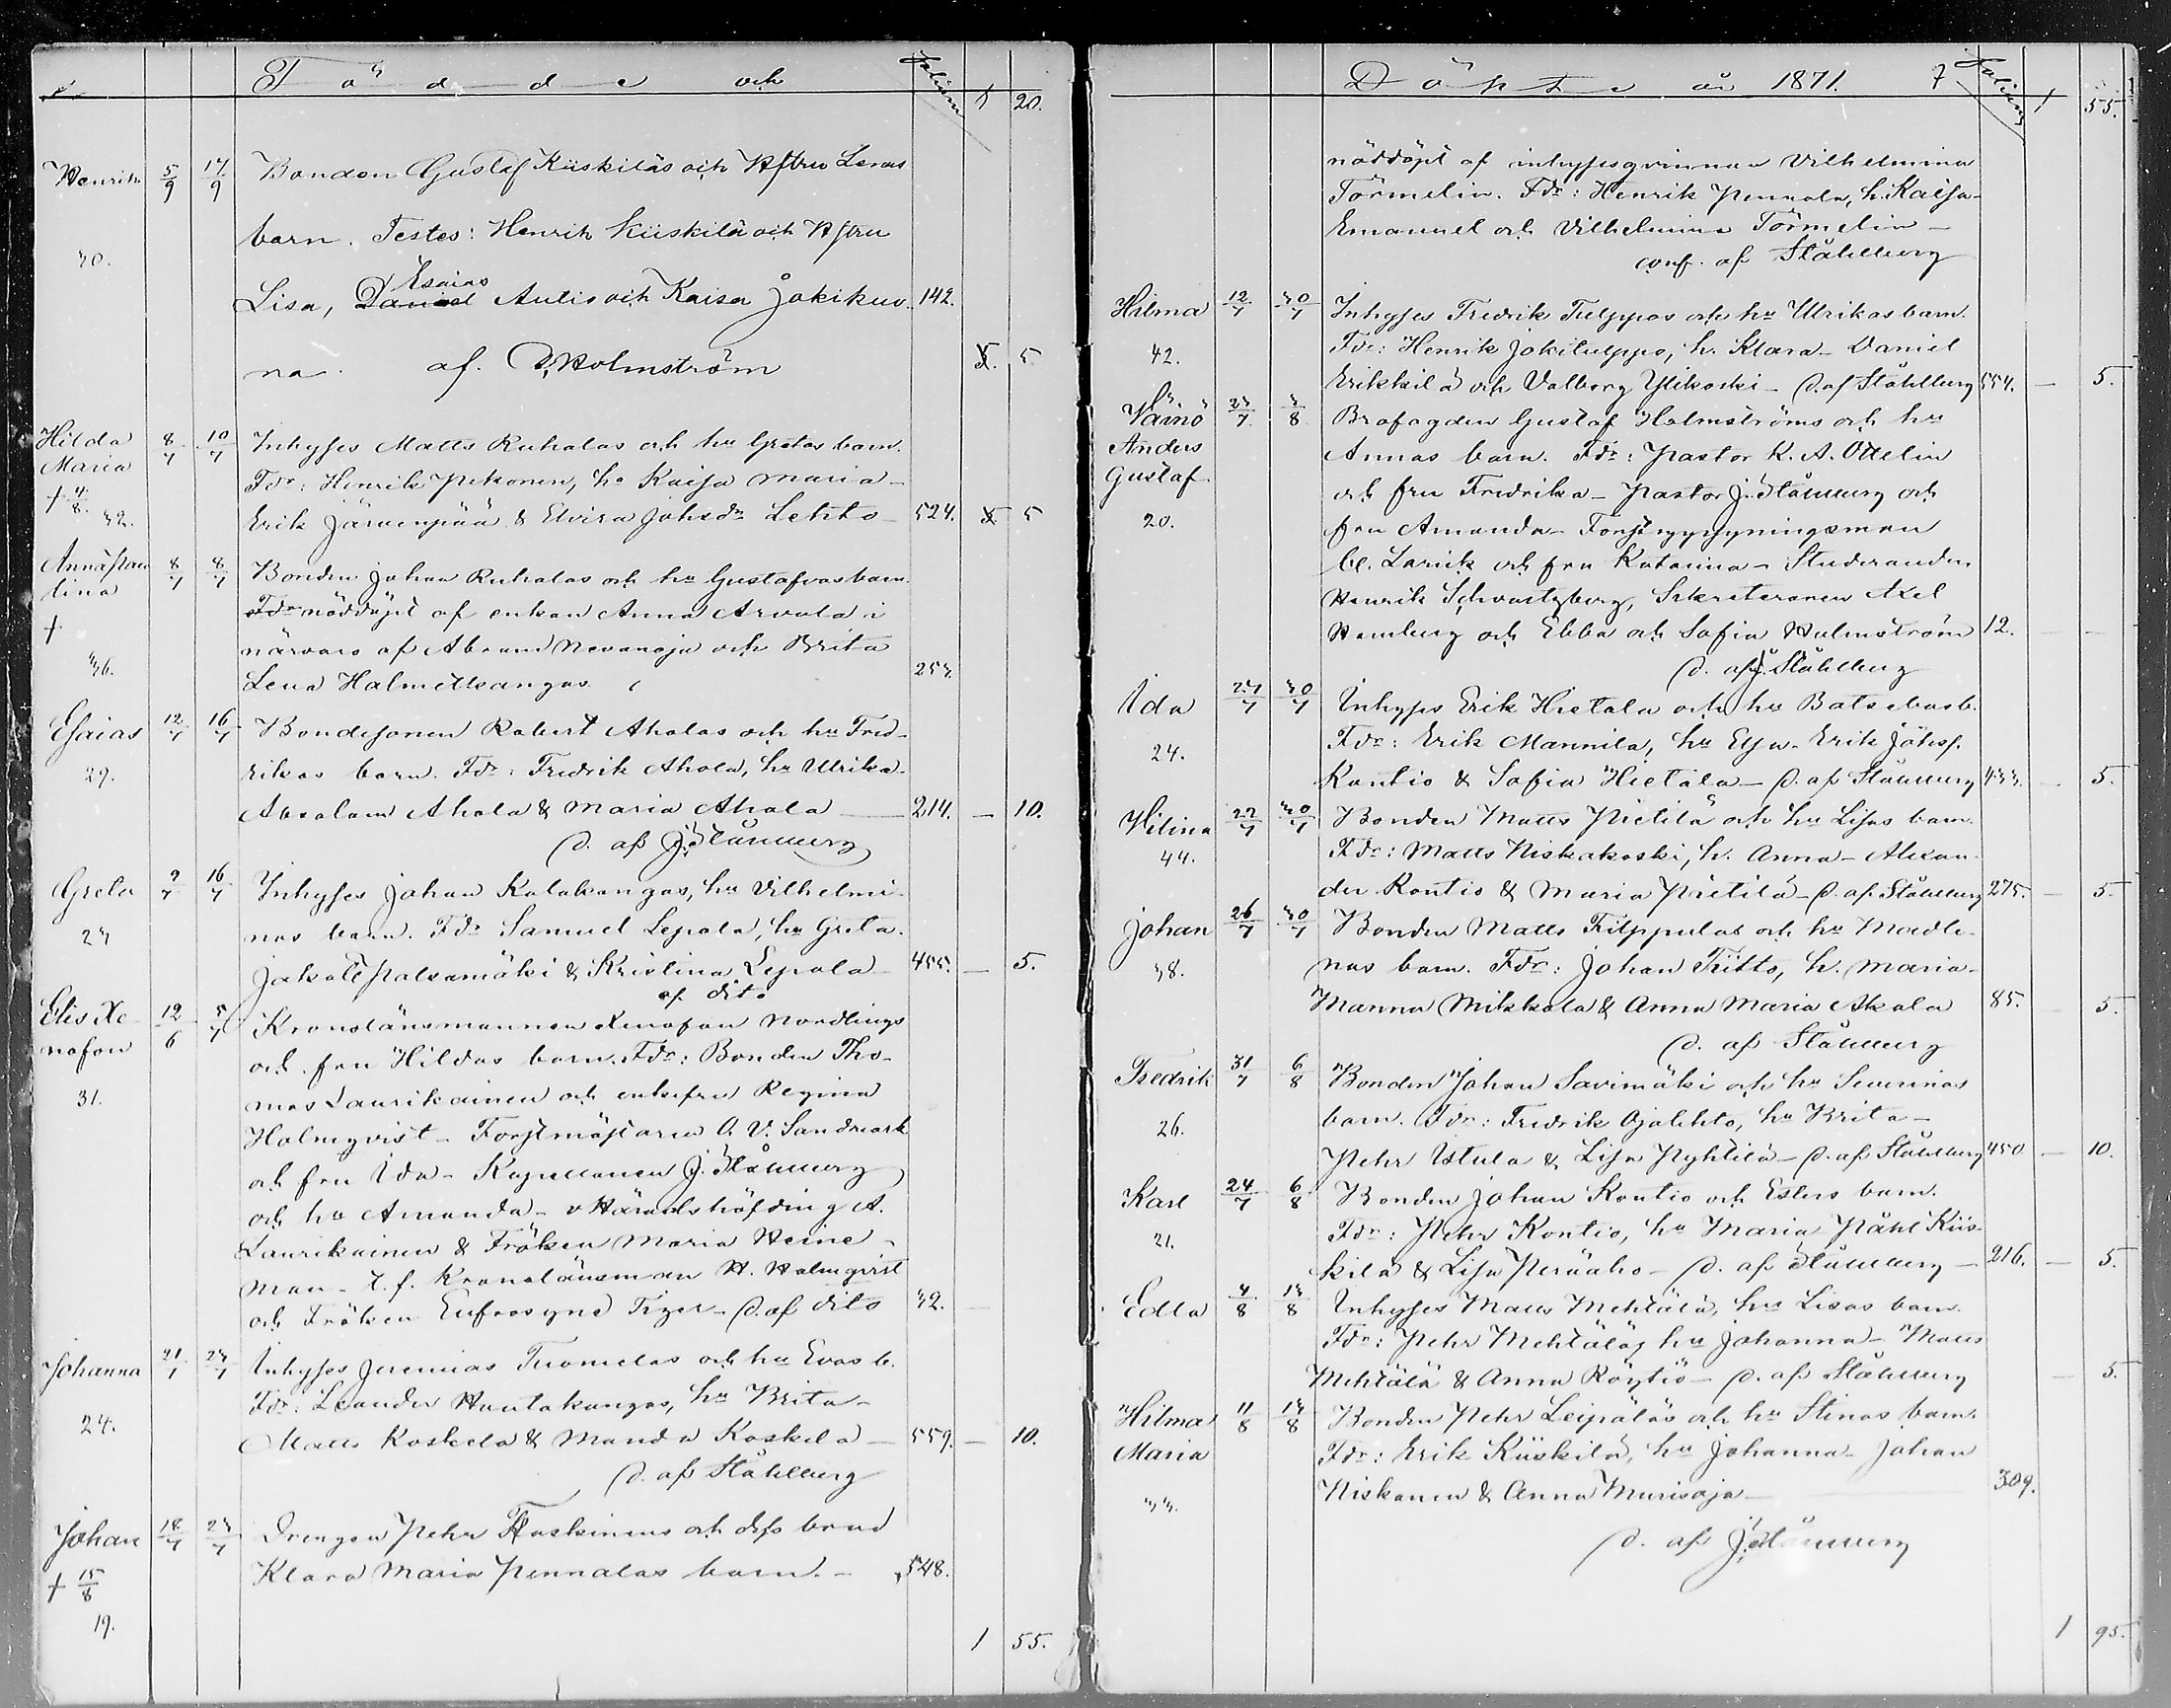 Födde och
Folium
1 20.
Henrik 5/9 17/9 Bonden Gustaf Kiiskiläs och Hstru Lenas
barn. Testes: Henrik Kiiskilä och Hstru
30.
Esaias
Lisa, Daniel Antis och Kaisa Jokikuo- 142.
na. af. Holmström 5
Hilda 8/7 10/7 Inhyses Matts Ruhalas och hu Gretas barn.
Maria Fdr: Henrik Pekonen, hu Kaisa Maria-
+ 4/8. 32. Erik Järvenpää & Elvira Johsdr Lehto 524. 5
Anna Pau 8/7 8/7 Bonden Johan Ruhalas och hu Gustafvas barn.
lina Fdr nöddöpt af enkan Anna Arvola i
+ närvaro af Abram Nevanoja och Brita
36. Lena Halmetkangas. 253.
Esaias 12/7 16/7 Bondesonen Robert Aholas och hu Fred-
29. rikas barn. Fdr: Fredrik Ahola, hu Ulrika-
Absalom Ahola & Maria Ahola 214. — 10.
D. af J. Ståhlberg
Greta 9/7 16/7 Inhyses Johan Kalakangas, hu Vilhelmi-
23 nas barn. Fdr Samuel Lepola, hu Greta-
Jakob Palsamäki & Kristina Lepola 455. — 5.
af dito
Elis Xe- 12/6 5/7 Kronolänsmannen Xenofon Nordlings
nofon och fru Hildas barn. Fdr: Bonden Tho-
31. mas Laurikainen och enkefru Regina
Holmqvist- Forstmästaren A. V. Sandmark
och fru Ida- Kapellanen J. Ståhlberg
och hu Amanda- v Häradshöfding A.
Laurikainen & Fröken Maria Heine-
man- t. f. Kronolänsman H. Holmqvist
och Fröken Eufrosyne Tizer- D. af dito 32. —
Johanna 21/7 23/7 Inhyses Jeremias Tuomelas och hu Evas b.
Fdr: Leander Hautakangas, hu Brita-
24. Matts Koskela & Manda Koskela — 559. — 10.
D. af Ståhlberg
Johan 18/7 23/7 Drengen Pehr Kaskinens och dess brud
+ 15/8 Klara Maria Pennalas barn. - 548.
19.
1 55.
Döpte år 1871. 7
Folium
1 55.
nöddöpt af inhysesqvinnan Vilhelmina
Törmelin. Fdr: Henrik Pennala, h. Kaisa-
Emanuel och Vilhelmina Törmelin-
conf. af Ståhlberg
Hilma 12/7 30/7 Inhyses Fredrik Tulppos och hu Ulrikas barn.
42. Fdr: Henrik Jokitulppo, h. Klara- Daniel
Erikkilä och Valborg Ylikoski- D. af Ståhlberg 554. — 5.
Väinö 23/7 3/8 Brofogden Gustaf Holmströms och hu
Anders Annas barn. Fdr: Pastor K. A. Ottelin
Gustaf och fru Fredrika- Pastor J. Ståhlberg och
20. fru Amanda- Forstuppsyningsman
C. Larick och fru Katarina- Studeranden
Henrik Schwartzberg, Sekreteraren Axel
Hamberg och Ebba och Sofia Holmström 12.
D. af J. Ståhlberg
Ida 27/7 30/7 Inhyses Erik Hietala och hu Batsebas b.
24. Fdr: Erik Mannila, hu Elsa- Erik Johsf.
Kontio & Sofia Hietala- D. af Ståhlberg 433. — 5.
Vilina 22/7 30/7 Bonden Matts Pietilä och hu Lisas barn.
44. Fdr: Matts Niskakoski, h. Anna- Alexan-
der Kontio & Maria Pietilä- D. af Ståhlberg 275. — 5.
Johan 26/7 30/7 Bonden Matts Filppulas och hu Madle-
38. nas barn. Fdr: Johan Tiitto, h. Maria-
Manna Mikkola & Anna Maria Akola 85. — 5.
D. af Ståhlberg
Fredrik 31/7 6/8 Bonden Johan Savimäki och hu Severinas
26. barn. Fdr: Fredrik Ojalehto, hu Brita-
Pehr Ustula & Lisa Pyhtilä- D. af Ståhlberg 450 — 10.
Karl 24/7 6/8 Bonden Johan Kontio och Esters barn.
21. Fdr: Pehr Kontio, hu Maria Påhl Kiis-
kilä & Lisa Peräaho- D. af Ståhlberg — 216. — 5.
Edla 4/8 13/8 Inhyses Matts Mehtälä, hu Lisas barn.
Fdr: Pehr Mehtälä, hu Johanna- Matts
Mehtälä & Anna Röytiö- D. af Ståhlberg — 5.
Hilma 11/8 13/8 Bonden Pehr Leipäläs och hu Stinas barn.
Maria Fdr: Erik Kiiskilä, hu Johanna- Johan
33. Niskanen & Anna Murisoja- 309.
D. af J. Ståhlberg
1 95.